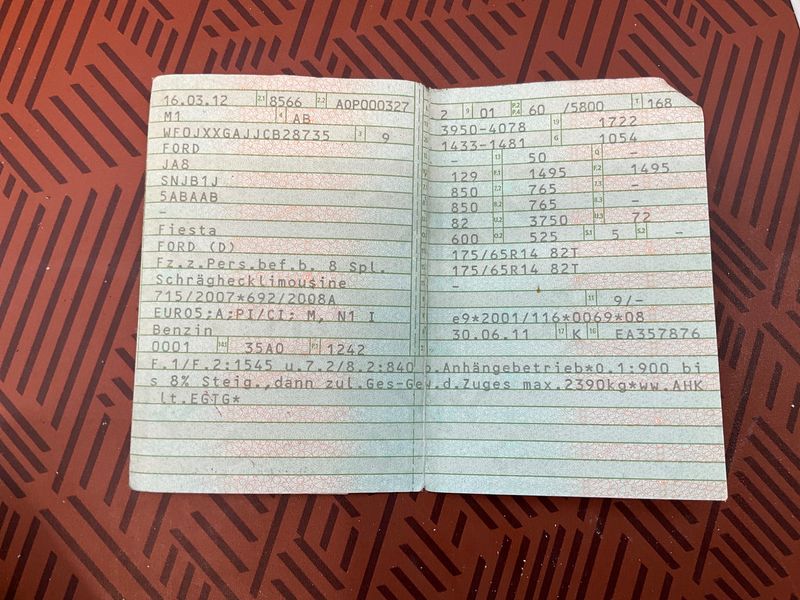 16.03.12 2.1 8566 2.2 A0P000327
M1 4 AB
WF0JXXGAJJCB28735 3 9
FORD
JA8
SNJB1J
5ABAAB
-
Fiesta
FORD (D)
Fz.z.Pers.bef.b. 8 Spl.
Schräghecklimousine
715/2007*692/2008A
EURO5;A;PI/CI; M, N1 I
Benzin
0001 35A0 1242
2 9 01 P.2 P.4 60 /5800 T 168
3950-4078 19 1722
1433-1481 G 1054
- 13 50 Q -
129 F.1 1495 F.2 1495
850 7.2 765 7.3 -
850 8.2 765 8.3 -
82 U.2 3750 U.3 72
600 O.2 525 S.1 5 S.2 -
175/65R14 82T
175/65R14 82T
-
11 9/-
e9*2001/116*0069*08
30.06.11 17 K 16 EA357876
F.1/F.2:1545 u.7.2/8.2:840 b.Anhängebetrieb*O.1:900 bi
s 8% Steig.,dann zul.Ges-Gew.d.Zuges max.2390kg*ww.AHK
lt.EGTG*